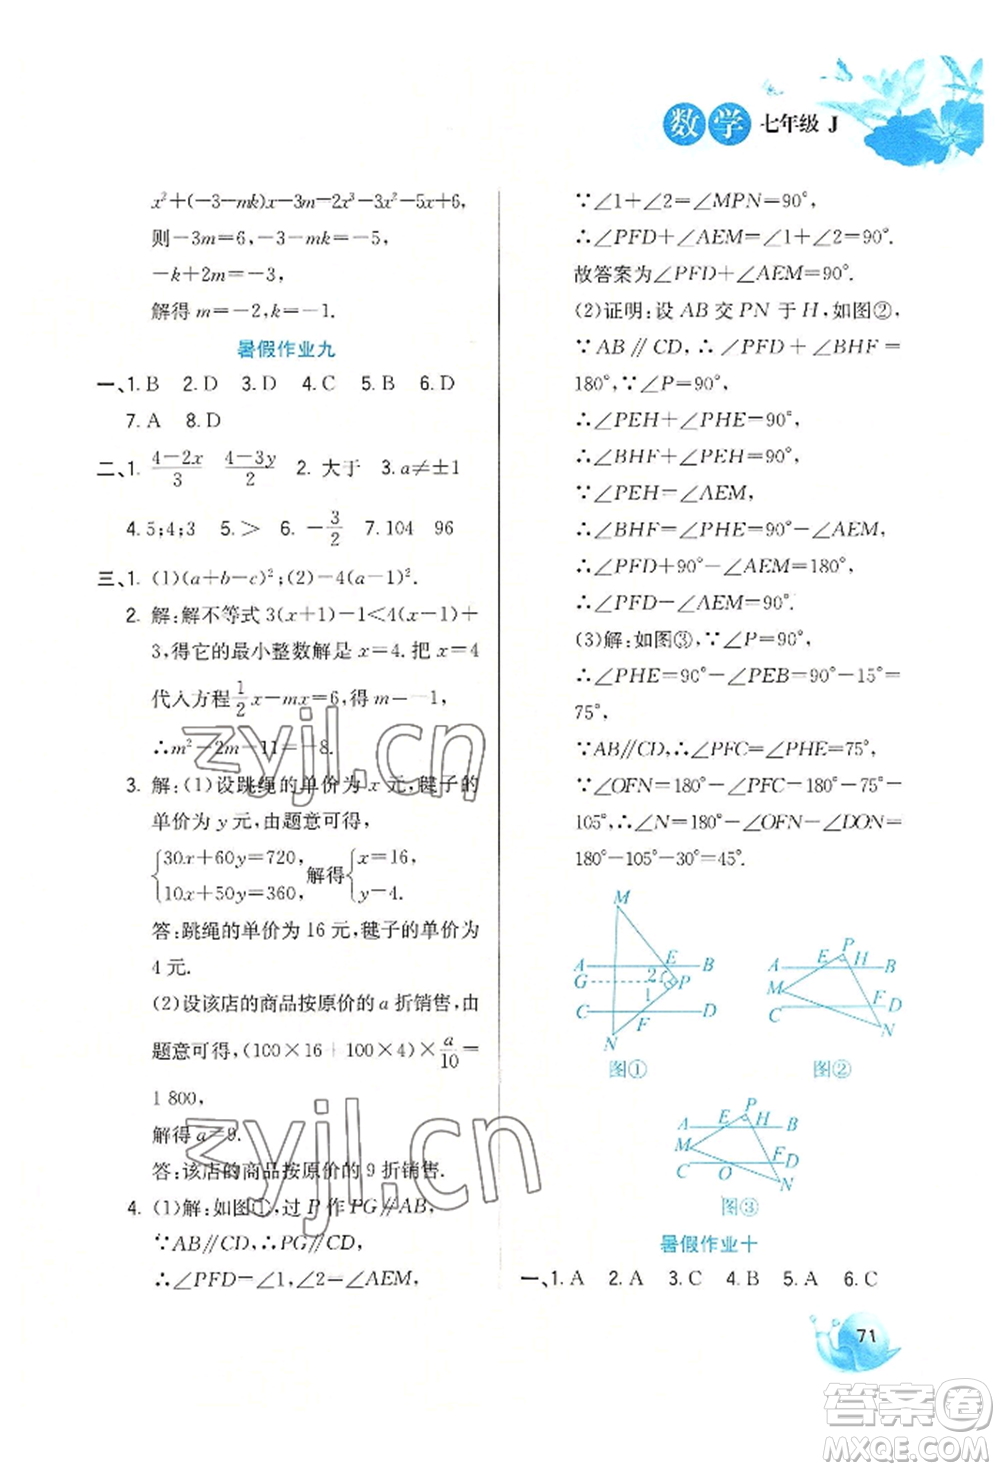 数学 七年级 J
x²+(-3-mk)x-3m-2x³-3x²-5x+6,
则-3m=6, -3-mk=-5,
-k+2m=-3,
解得 m=-2,k=-1.
暑假作业九
一、1. B 2. D 3. D 4. C 5. B 6. D
7. A 8. D
二、1. (4-2x)/3 (4-3y)/2 2. 大于 3. a≠±1
4. 5;4;3 5. > 6. -3/2 7. 104 96
三、1. (1)(a+b-c)²;(2)-4(a-1)².
2. 解:解不等式 3(x+1)-1<4(x-1)+
3,得它的最小整数解是 x=4. 把 x=4
代入方程 1/2 x-mx=6,得 m=-1,
∴m²-2m-11=-8.
3. 解:(1)设跳绳的单价为 x 元, 毽子的
单价为 y 元,由题意可得,
{30x+60y=720, 解得 {x=16,
10x+50y=360, y-4.
答:跳绳的单价为 16 元, 毽子的单价为
4 元.
(2)设该店的商品按原价的 a 折销售,由
题意可得,(100×16+100×4)×a/10=
1 800,
解得 a=9.
答:该店的商品按原价的 9 折销售.
4. (1)解:如图①,过 P 作 PG∥AB,
∵AB∥CD,∴PG∥CD,
∴∠PFD=∠1,∠2=∠AEM,
∵∠1+∠2=∠MPN=90°,
∴∠PFD+∠AEM=∠1+∠2=90°.
故答案为∠PFD+∠AEM=90°.
(2)证明:设 AB 交 PN 于 H,如图②,
∵AB∥CD,∴∠PFD+∠BHF=
180°,∵∠P=90°,
∴∠PEH+∠PHE=90°,
∵∠BHF=∠PHE,∠PEH
∠PEH=∠AEM,
∴∠BHF=∠PHE=90°-∠AEM,
∴∠PFD+90°-∠AEM=180°,
∴∠PFD-∠AEM=90°.
(3)解:如图③,∵∠P=90°,
∴∠PHE=90°-∠PEB=90°-15°=
75°,
∵AB∥CD,∴∠PFC=∠PHE=75°,
∵∠OFN=180°-∠PFC-180°-75°-
105°,∴∠N=180°-∠OFN-∠DON=
180°-105°-30°=45°.
M
A E B
G 2 P
1
C F D
N
图①
P
A E H B
M
C F D
N
图②
P
A E H B
M
C O F D
N
图③
暑假作业十
一、1. A 2. A 3. C 4. B 5. A 6. C
71
zyjl.cn
zyjl.cn
答案圈
MXQE.COM